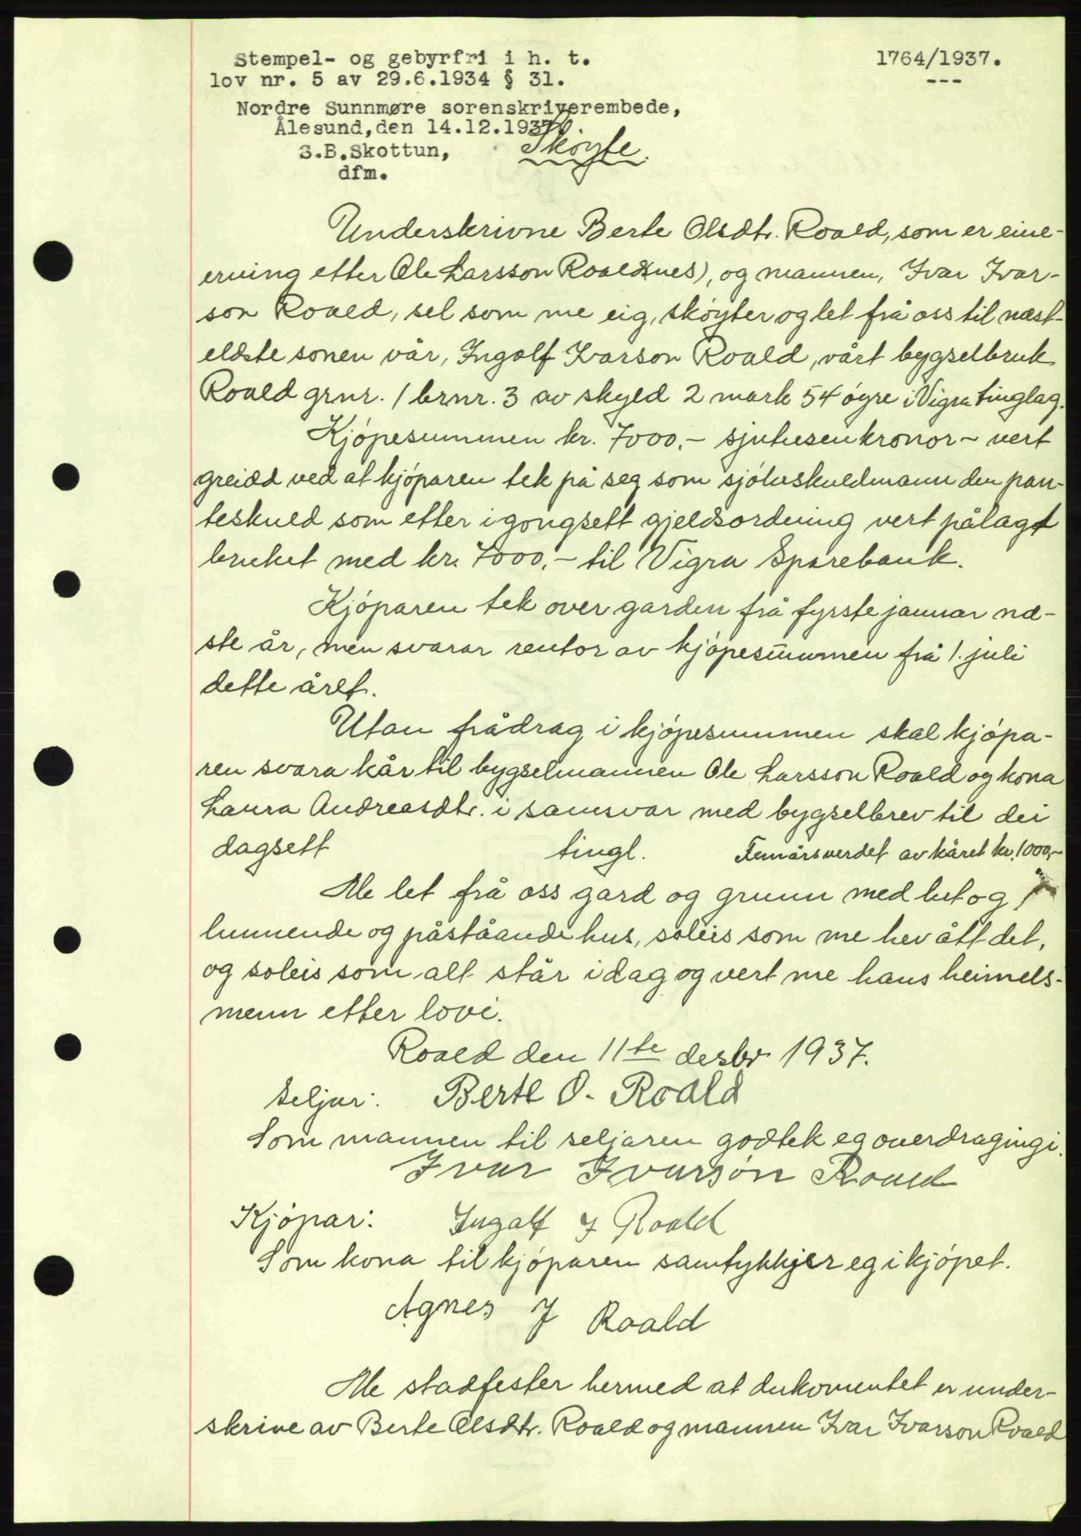 Stempel- og gebyrfri i h. t.
lov nr. 5 av 29.6.1934 § 31.
1764/1937.
---
Nordre Sunnmøre sorenskriverembede,
Ålesund,den 14.12.1937.
S.B.Skottun,
dfm.
Skøyte.
Underskrivne Berte Olsdtr. Roald, som er eine-
erving etter Ole Larsson Roald(nes), og mannen, Ivar Ivar-
son Roald, sel som me eig, skøyter og let frå oss til næst-
eldste sonen vår, Ingolf Ivarson Roald, vårt bygselbruk
Roald grnr. 1 brnr. 3 av skyld 2 mark 54 øyre i Vigra tinglag.
Kjøpesummen kr. 7000.- sjutusenkronor- vert
greidd ved at kjøparen tek på seg som sjølvskuldmann den pan-
teskuld som etter igongsett gjeldsordning vert pålagt
bruket med kr. 7000.- til Vigra Sparebank.
Kjøparen tek over garden frå fyrste januar næ-
ste år, men svarar rentor av kjøpesummen frå 1. juli
dette året.
Utan frådrag i kjøpesummen skal kjøpa-
ren svara kår til bygselmannen Ole Larsson Roald og kona
Laura Andreasdtr. i samsvar med bygselbrev til dei
dagsett tingl. Femårsverdet av kåret kr. 1000,-
Me let frå oss gard og grunn med lut og
lunnende og påståande hus, soleis som me hev ått det,
og soleis som alt står i dag og vert me hans heimels-
menn etter lovi.
Roald den 11te desbr 1937.
Seljar: Berte O. Roald
Som mannen til seljaren godtek eg overdragingi.
Ivar Ivarson Roald
Kjøpar: Ingolf J Roald
Som kona til kjøparen samtykkjer eg i kjøpet.
Agnes J Roald
Me stadfester hermed at dokumentet er under-
skrive av Berte Olsdtr. Roald og mannen Ivar Ivarson Roald